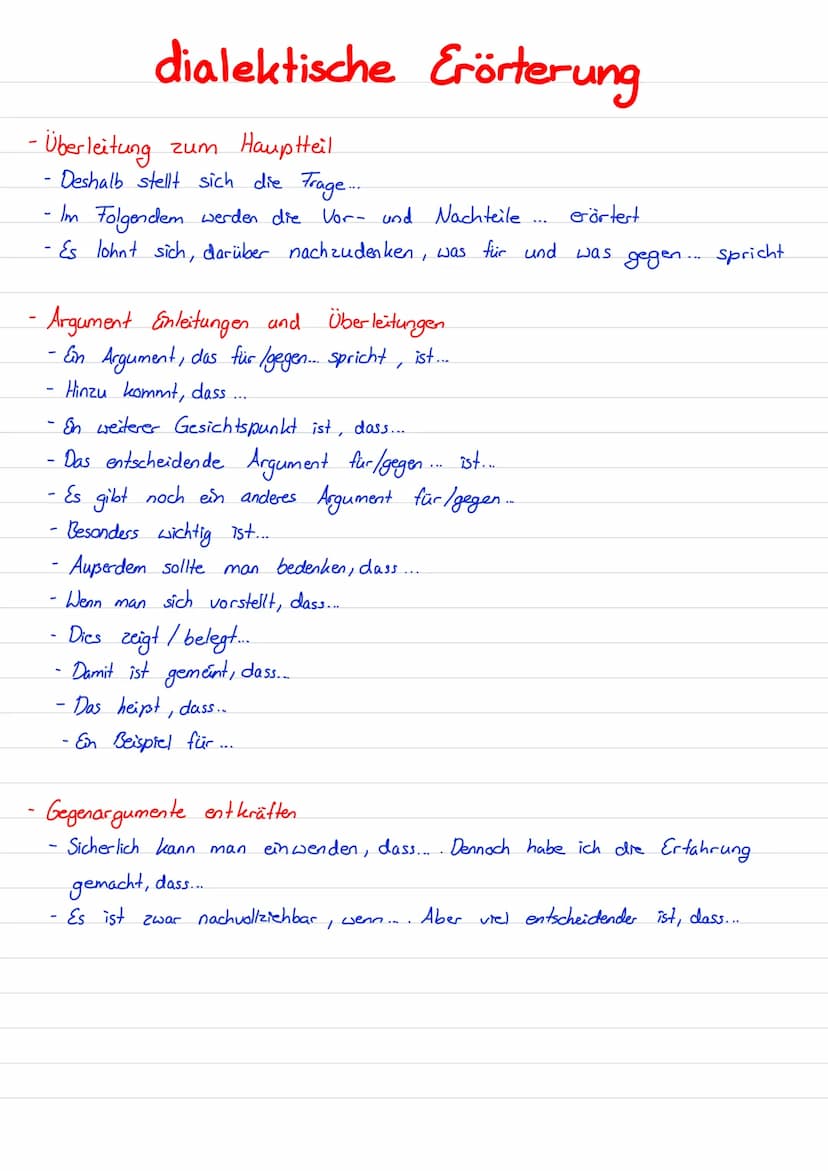 dialektische Erörterung
- Überleitung zum Hauptteil
- Deshalb stellt sich die Frage...
- Im Folgendem werden die Vor- und Nachteile ... erörtert
- Es lohnt sich, darüber nachzudenken, was für und was gegen... spricht
- Argument Einleitungen und Überleitungen
- Ein Argument, das für/gegen... spricht, ist...
- Hinzu kommt, dass ...
- Ein weiterer Gesichtspunkt ist, dass...
- Das entscheidende Argument für/gegen ... ist...
- Es gibt noch ein anderes Argument für/gegen...
- Besonders wichtig ist...
- Außerdem sollte man bedenken, dass ...
- Wenn man sich vorstellt, dass...
- Dies zeigt / belegt...
- Damit ist gemeint, dass...
- Das heißt, dass...
- Ein Beispiel für ...
- Gegenargumente entkräften
- Sicherlich kann man einwenden, dass... . Dennoch habe ich die Erfahrung
gemacht, dass...
- Es ist zwar nachvollziehbar, wenn... . Aber viel entscheidender ist, dass...